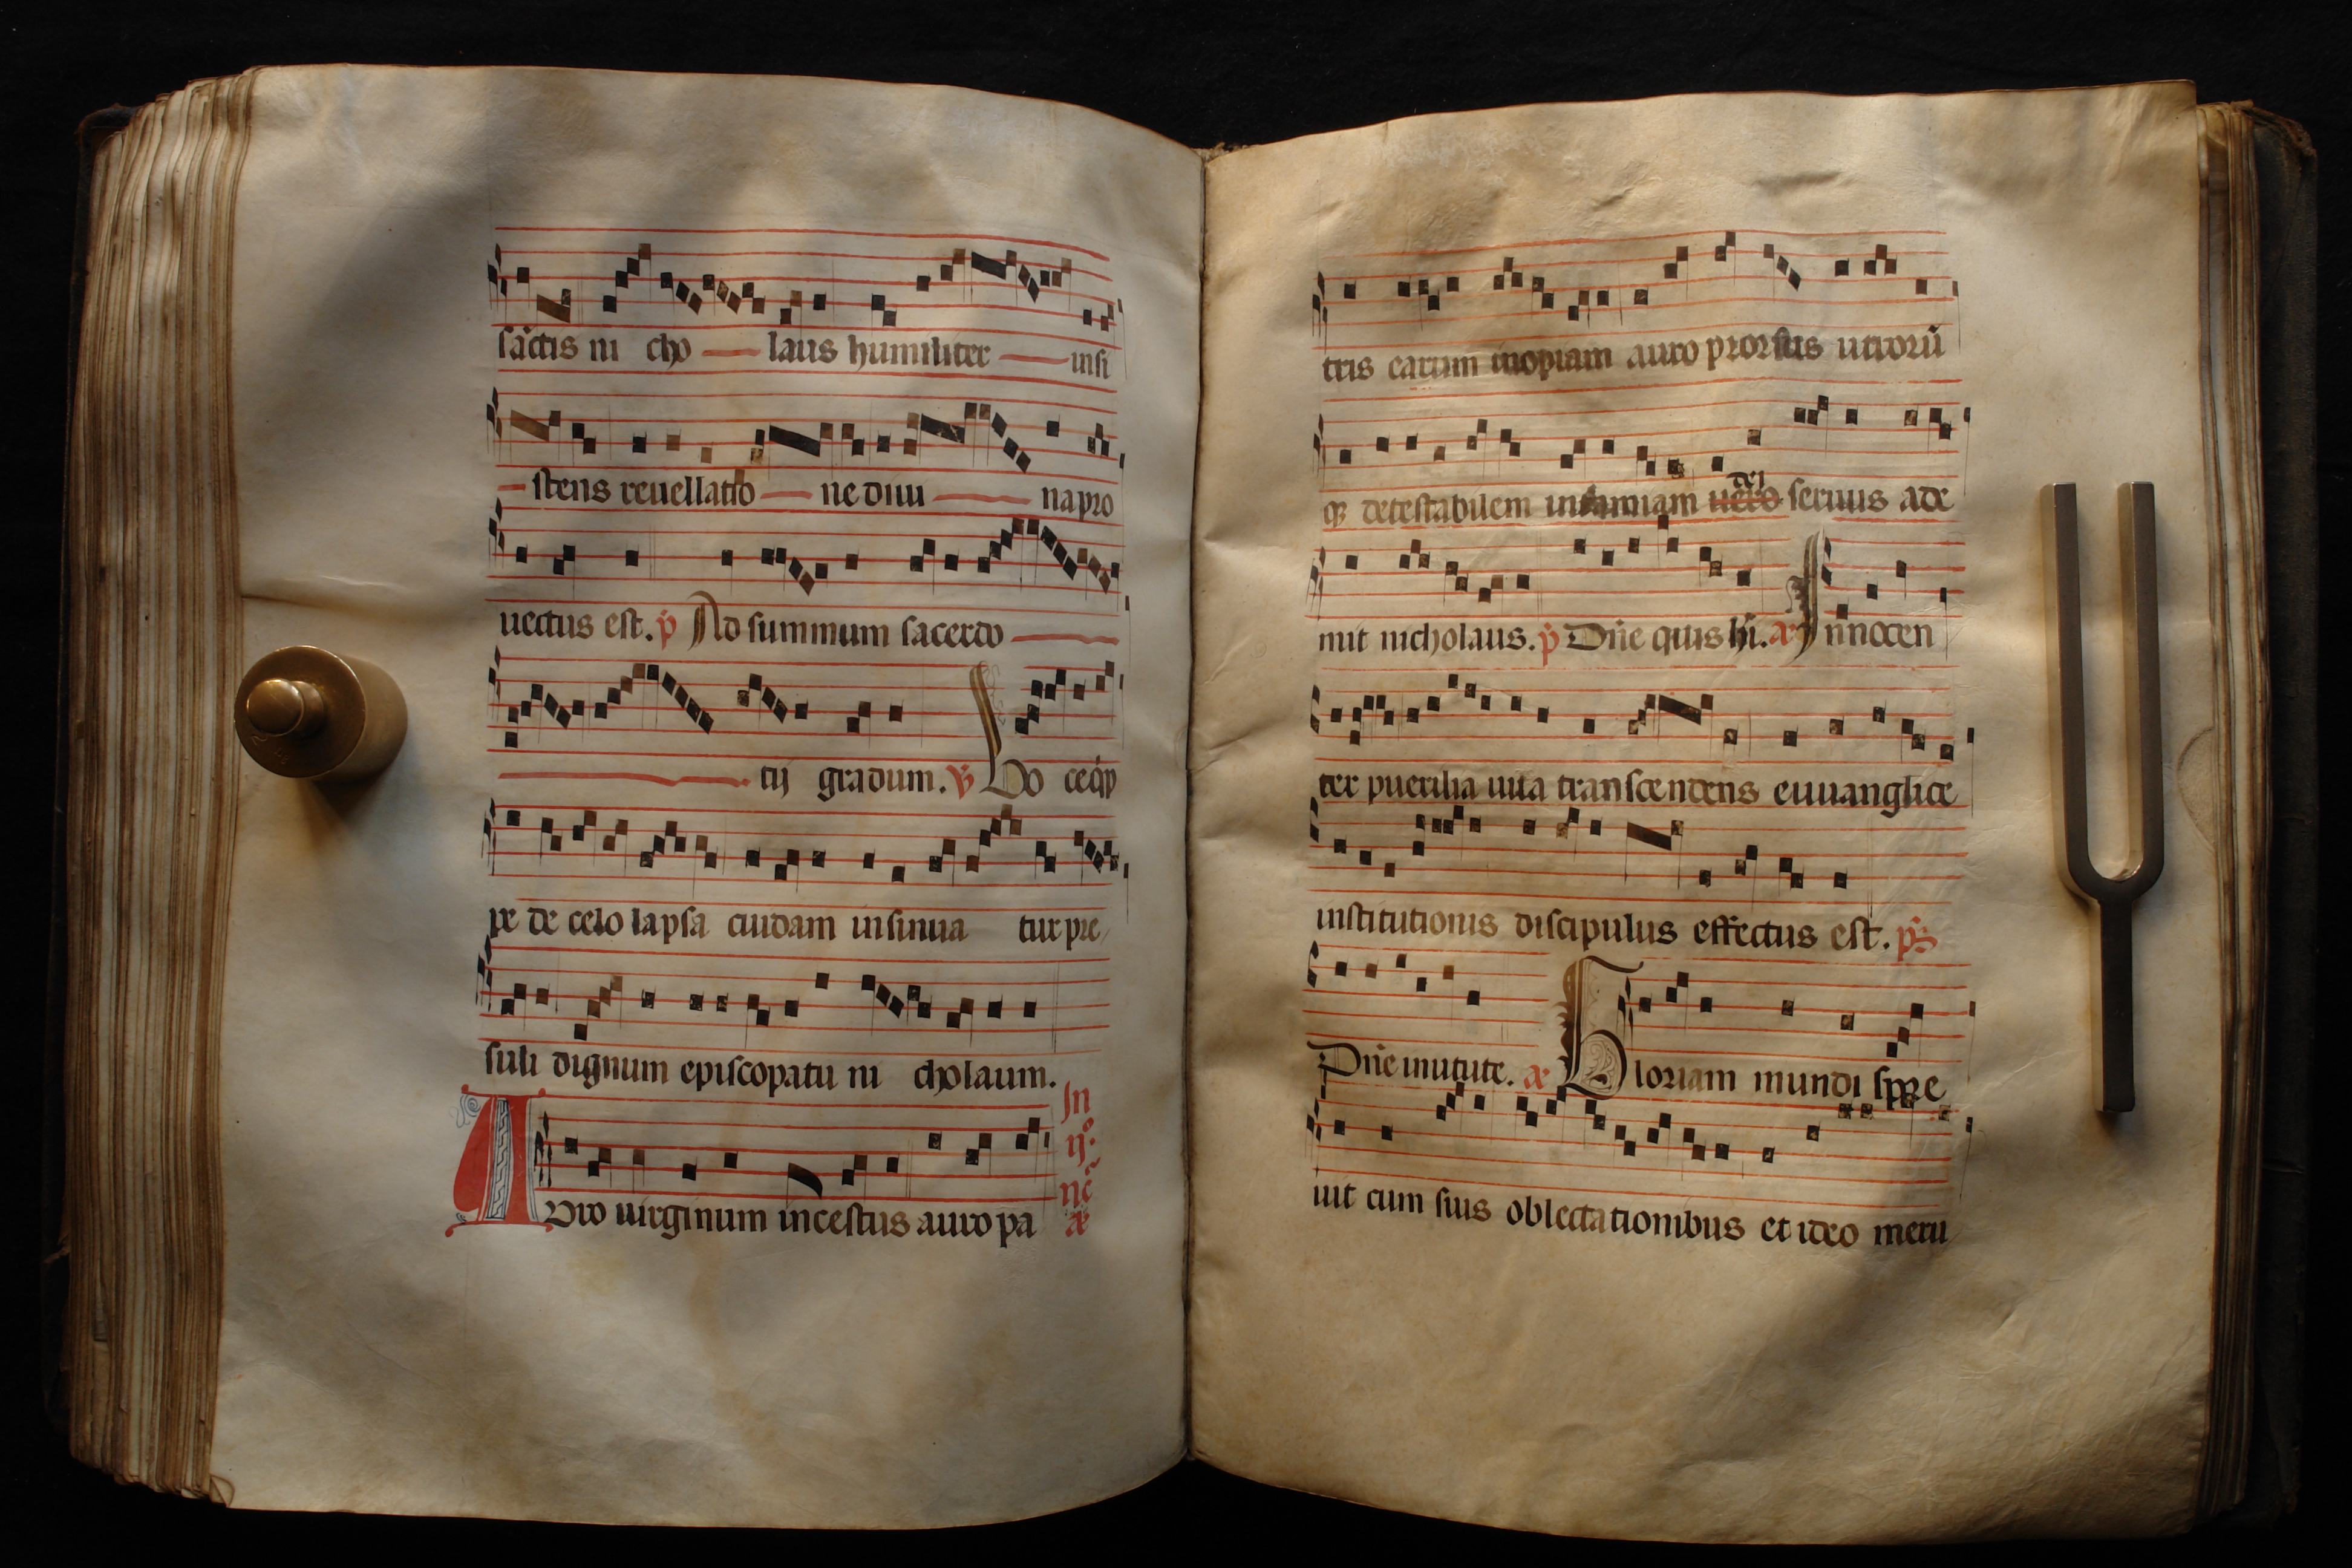 sãctis ni cho laus humiliter insi
stens reuellatio ne diui na pro
uectus est. p̃ Ad summum sacerdo
tij gradum. ℣ Uo ceqȝ
pe de celo lapsa cuidam insinua tur pre
suli dignum episcopatu ni cholaum.
In
ijº.
nc̃
Auro uirginum incestus auro pa
añ
tris earum inopiam auro prorsus utrorũ
dei
qȝ detestabilem infamiam uero seruus ade
mit nicholaus. p̃ Dñe quis hĩ. añ Innocen
ter puerilia iura transcendens euuanglice
institutionis discipulus effectus est. p̃s
Dñe in uirtute. añ Gloriam mundi spre
uit cum suis oblectationibus et ideo meru